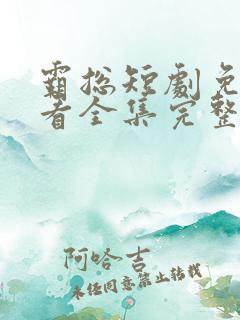 霸总短劇免
看全集完整
阿哈吉
未经同意禁止转载